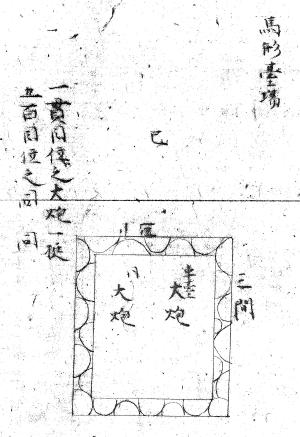 馬形臺場
巳
一貫目位之大炮一挺
五百目位之同 同
三間
車臺
大炮
大炮